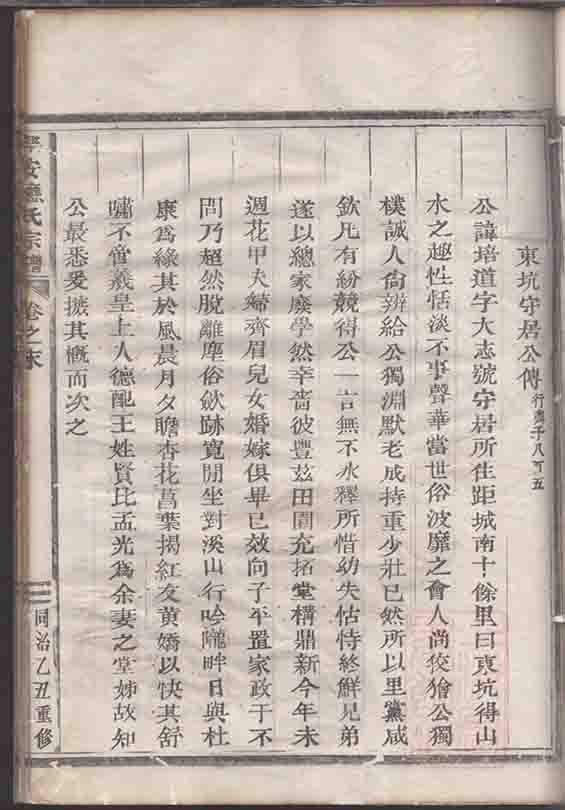 東坑守居公傳 行齊千八百五
公諱培道字大志號守居所住距城南十餘里曰東坑得山
水之趣性恬淡不事聲華當世俗波靡之會人尚狡獪公獨
樸誠人尚辨給公獨淵默老成持重少壯已然所以里黨咸
欽凡有紛競得公一言無不氷釋所惜幼失怙恃終鮮兄弟
遂以總家廢學然幸嗇彼豐兹田園充拓堂構鼎新今年未
週花甲夫婦齊眉兒女婚嫁俱畢已效向子平置家政于不
問乃超然脫離塵俗斂跡寬閒坐對溪山行吟隴畔日與杜
康爲緣其於風晨月夕瞻杏花菖葉揭紅友黃嬌以快其舒
嘯不啻羲皇上人德配王姓賢比孟光爲余妻之堂姊故知
公最悉爰摭其概而次之
安應氏宗譜
卷之末
同治乙丑重修